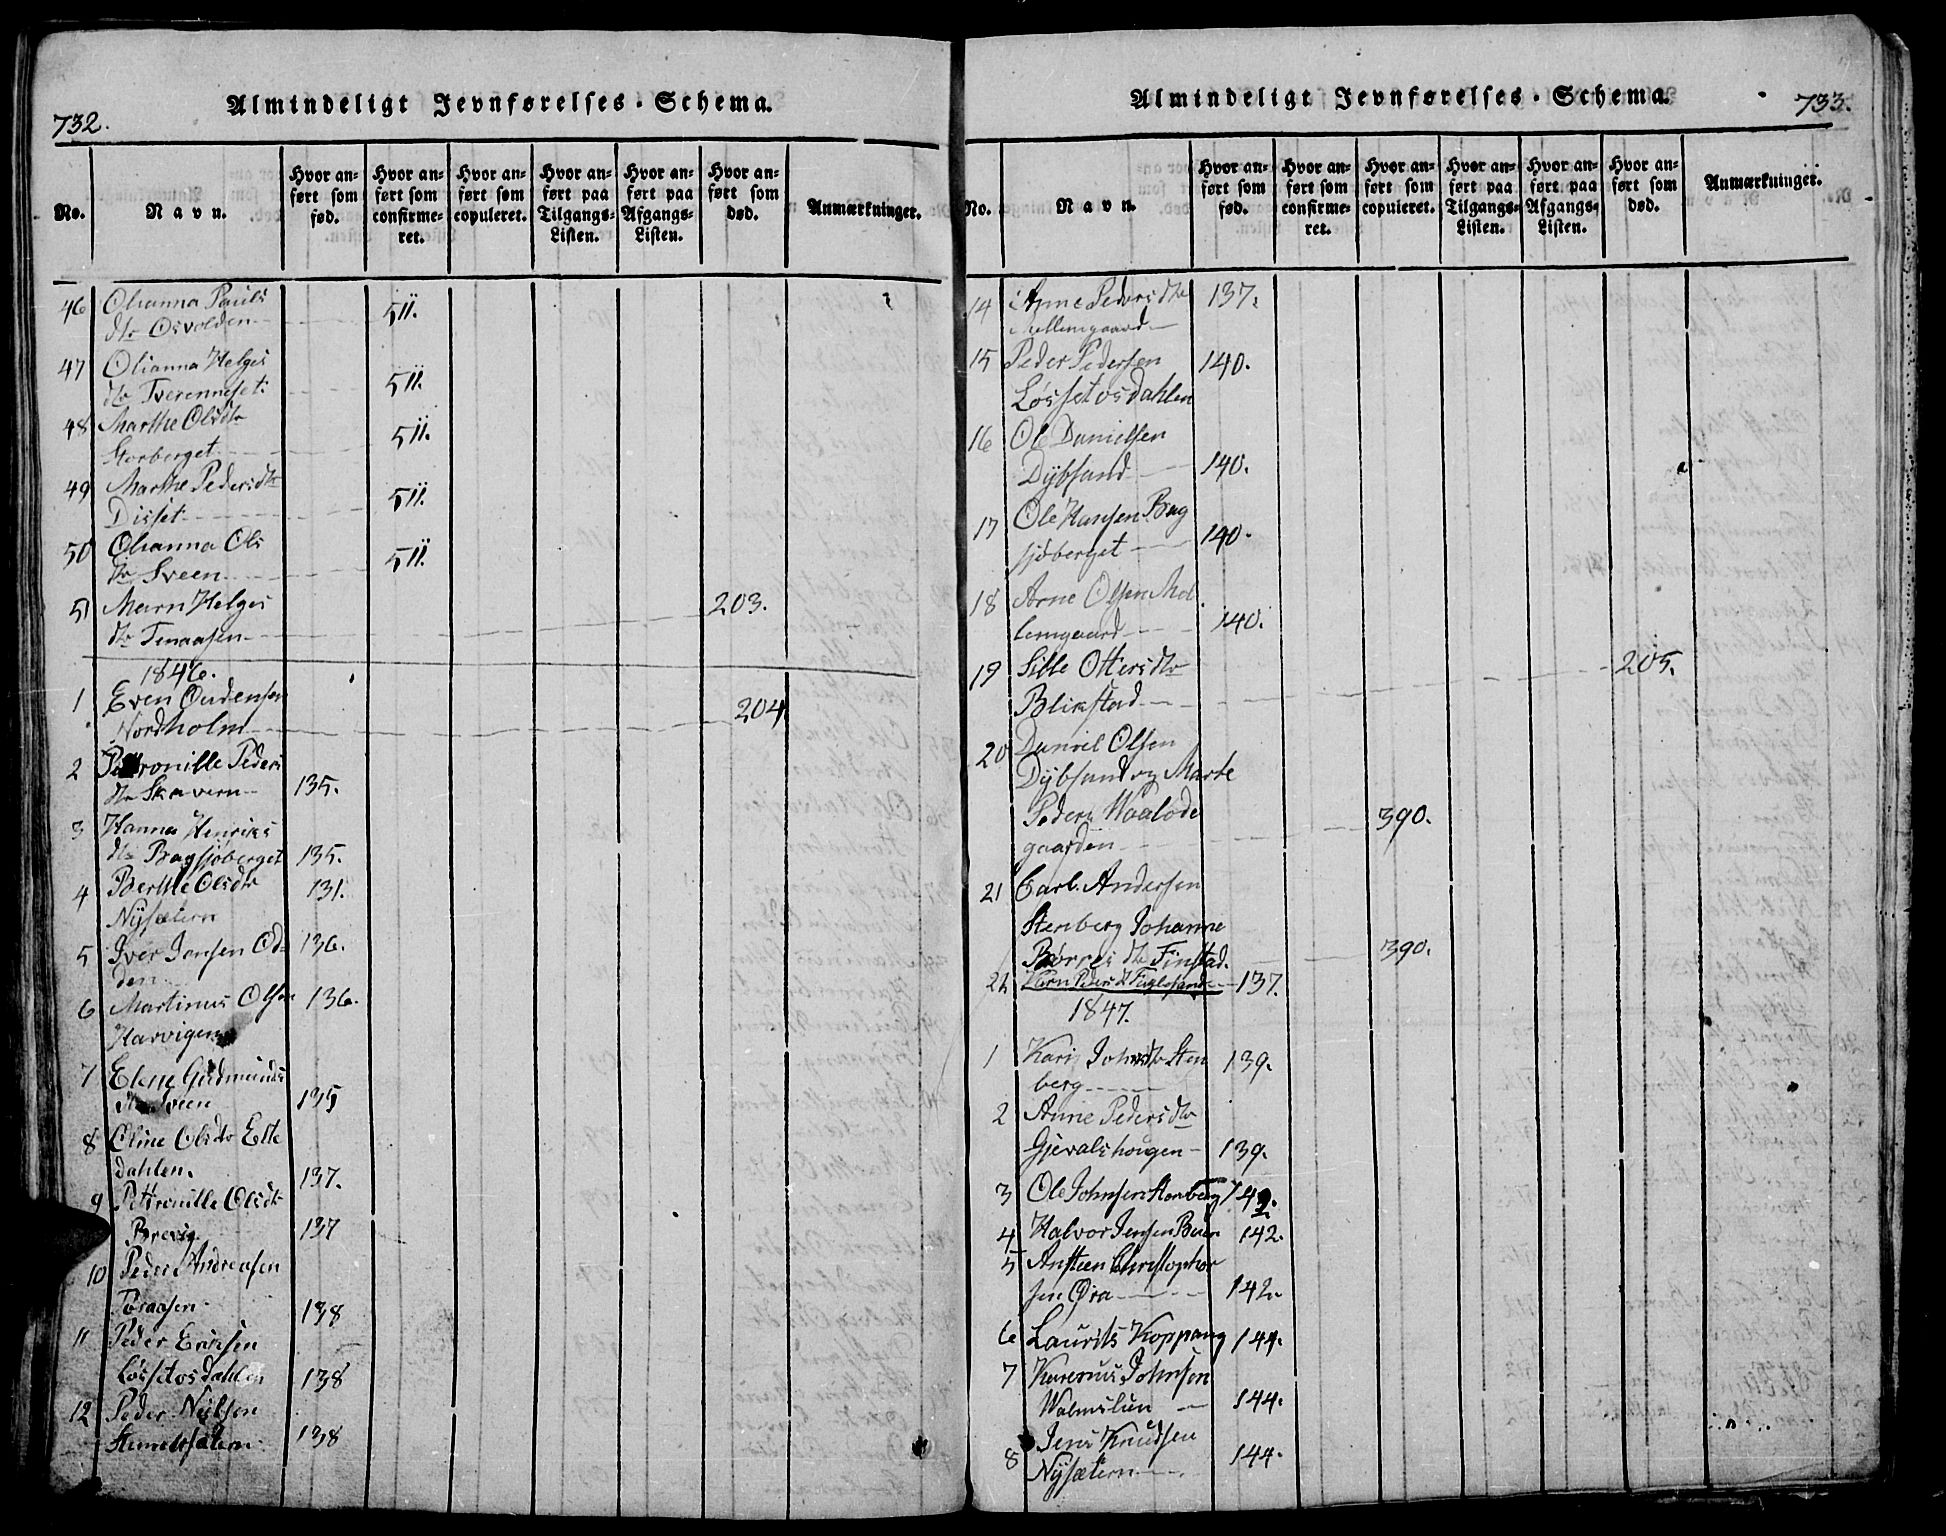 732.
Almindeligt Jevnførelses-Schema.
No.
Navn.
Hvor an-
ført som
fød.
Hvor an-
ført som
confirme-
ret.
Hvor an-
ført som
copuleret.
Hvor an-
ført paa
Tilgangs-
Listen.
Hvor an-
ført paa
Afgangs-
Listen.
Hvor an-
ført som
død.
Anmærkninger.
46 Olianna Pauls
dtr Osvolden 511.
47 Olianna Helges
dtr Tverenneset 511.
48 Marthe Olsdtr
Storberget 511.
49 Marthe Pedersdtr
Disset 511.
50 Olianna Ols
dtr Sveen 511.
51 Marn Helges
dtr 203.
1846.
1 Even Oudensen
Nordholm 204
2 Petronille Peders
dtr Skavern 135.
3 Hanna Henriks
dtr Bagsjøberget 135.
4 Berthe Olsdtr 131.
Nysætern
5 Iver Jensen Od- 136.
den
6 Martinus Olsen 136.
Harvigen
7 Elene Gudmunds
135
8 Oline Olsdtr Elle
dahlen. 137.
9 Pettronille Olsdtr
Brevig 137
10 Peder Andreasen
138
11 Peder Ericksen
Løssetosdahlen 138
12 Peder Nilsen
138
Almindeligt Jevnførelses-Schema.
733.
No.
Navn.
Hvor an-
ført som
fød.
Hvor an-
ført som
confirme-
ret.
Hvor an-
ført som
copuleret.
Hvor an-
ført paa
Tilgangs-
Listen.
Hvor an-
ført paa
Afgangs-
Listen.
Hvor an-
ført som
død.
Anmærkninger.
14 Anne Pedersdtr 137.
Mellemgaard
15 Peder Pedersen 140.
Løssetosdahlen
16 Ole Danielsen
Dybsand 140.
17 Ole Hansen Bag
sjøberget 140.
18 Arne Olsen Mel
lemgaard 140.
19 Sille Ottersdtr 205.
Blikstad
20 Daniel Olsen
Dybsand og Marte
Peders
gaarden 390.
21 Carl Andersen
Stenberg Johanne
Børres dtr Finstad. 390.
22 Karn Peders dtr Fuglesand 137.
1847.
1 Kari Johnsdtr Sten 139.
berg
2 Anne Pedersdtr
Gjevalshougen 139.
3 Ole Johnsen Stenberg 142.
4 Halvor Jensen 142.
5 Ansteen Christophor
sen Øra 142.
6 Laurits Koppang 144.
7 Karenus Johnsen
144.
8 Jens Knudsen
Nysætern 144.